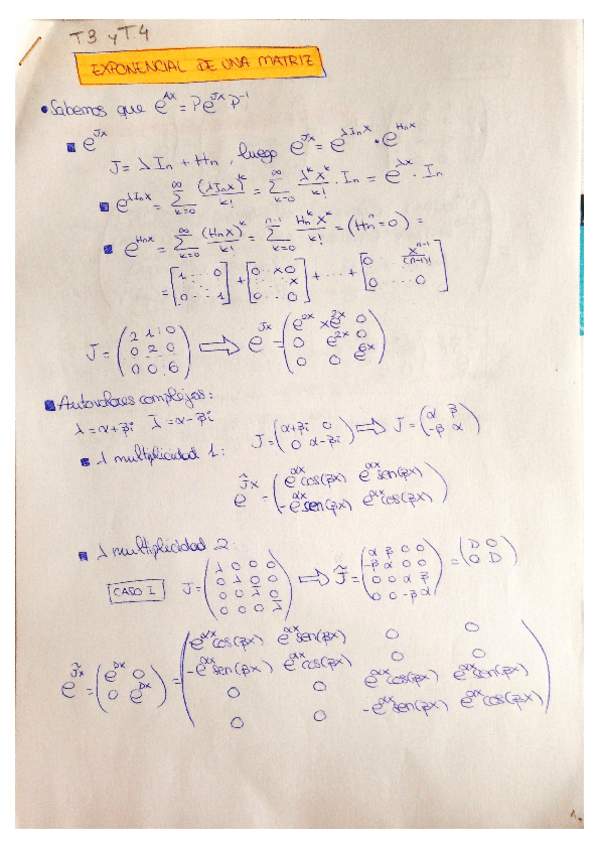 T3 y T.4
EXPONENCIAL DE UNA MATRIZ
• Sabemos que e^{Ax} = P e^{Jx} P^{-1}
■ e^{Jx}
J = λ In + Hn, luego e^{Jx} = e^{λ In x} · e^{Hn x}
■ e^{λ In x} = ∑_{k=0}^{∞} (λ In x)^k / k! = ∑_{k=0}^{∞} λ^k x^k / k! · In = e^{λx} · In
■ e^{Hn x} = ∑_{k=0}^{∞} (Hn x)^k / k! = ∑_{k=0}^{n-1} Hn^k x^k / k! = (Hn^n = 0) =
= [1 ·· 0 ; 0 ·· 1] + [0 ·· x 0 ; ·· x ; 0 ·· 0] + ··· + [0 x^{n-1}/(n-1)! ; 0 ···· 0]
J = (2 1 0 ; 0 2 0 ; 0 0 6) ⟹ e^{Jx} = (e^{2x} xe^{2x} 0 ; 0 e^{2x} 0 ; 0 0 e^{6x})
■ Autovalores complejos:
λ = α+βi λ̄ = α-βi
■ λ multiplicidad 1: J = (α+βi 0 ; 0 α-βi) ⟹ J = (α β ; -β α)
e^{J̃x} = (e^{αx}cos(βx) e^{αx}sen(βx) ; -e^{αx}sen(βx) e^{αx}cos(βx))
■ λ multiplicidad 2:
CASO I J = (λ 0 0 0 ; 0 λ 0 0 ; 0 0 λ̄ 0 ; 0 0 0 λ̄) ⟹ J̃ = (α β 0 0 ; -β α 0 0 ; 0 0 α β ; 0 0 -β α) = (D 0 ; 0 D)
e^{J̃x} = (e^{Dx} 0 ; 0 e^{Dx}) = (e^{αx}cos(βx) e^{αx}sen(βx) 0 0 ; -e^{αx}sen(βx) e^{αx}cos(βx) 0 0 ; 0 0 e^{αx}cos(βx) e^{αx}sen(βx) ; 0 0 -e^{αx}sen(βx) e^{αx}cos(βx))
1.